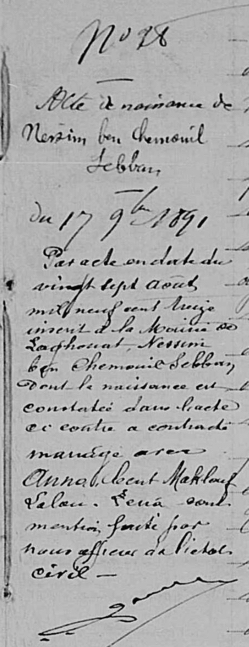 No 28
Acte de naissance de
Nessim ben Chemouil
Sebban
du 17 9bre 1891
Par acte en date du
vingt sept août
mil neuf cent treize
inscrit à la Mairie de
Laghouat, Nessim
ben Chemouil Sebban
dont la naissance est
constatée dans l'acte
ci contre a contracté
mariage avec
Anna bent Makhlouf
Lalou. Zena dont
mention faite par
nous officier de l'état
civil —